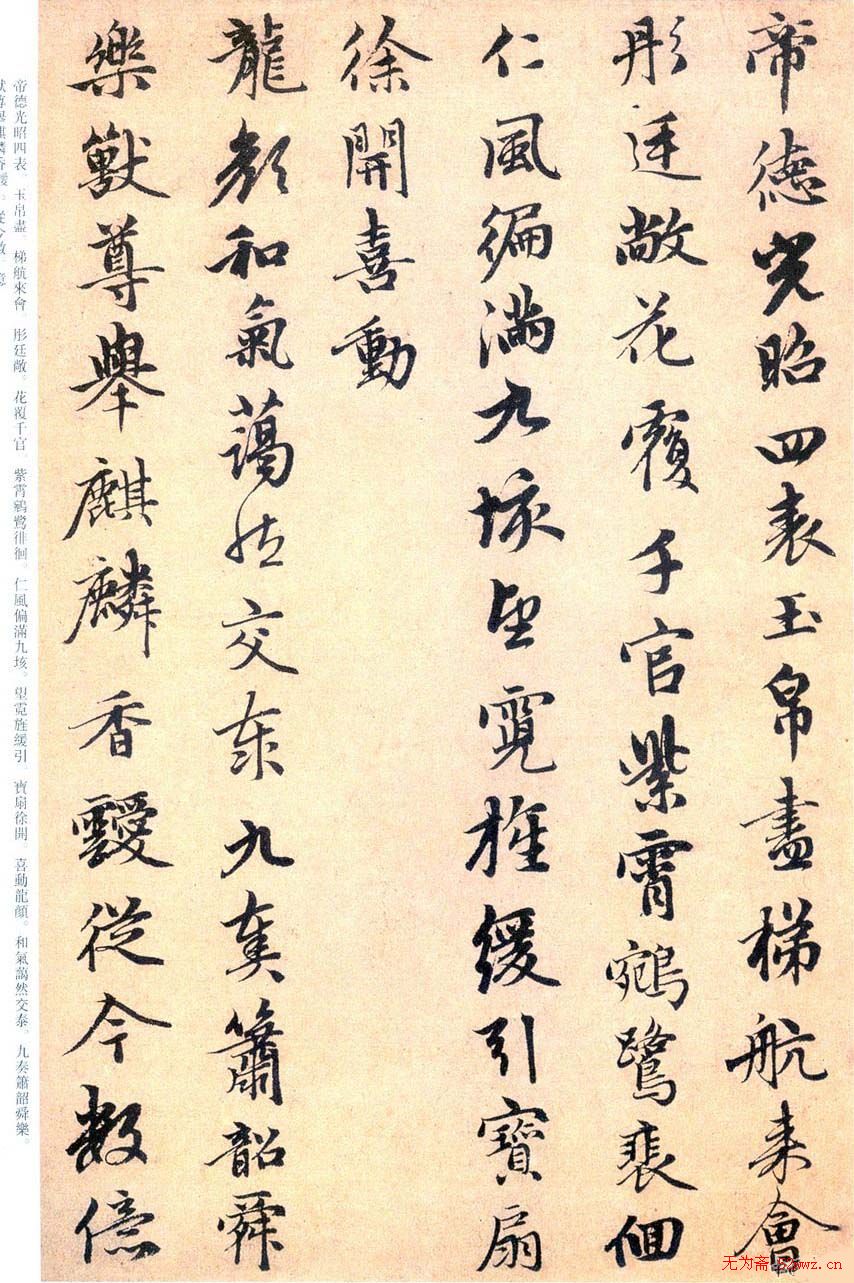 帝德光昭四表玉帛盡梯航来會
彤廷敞花覆千官紫霄鵷鷺裴佪
仁風徧満九垓望霓旌緩引寶扇
徐開喜動
龍顔和氣藹然交泰九奏簫韶舜
樂獸尊舉麒麟香靉從今數億
帝德光昭四表。玉帛盡。梯航來會。彤廷敞。花覆千官。紫霄鵷鷺徘徊。仁風偏滿九垓。望霓旌緩引。寶扇徐開。喜動龍顔。和氣藹然交泰。九奏簫韶舜樂。
无为斋 82wwz.cn